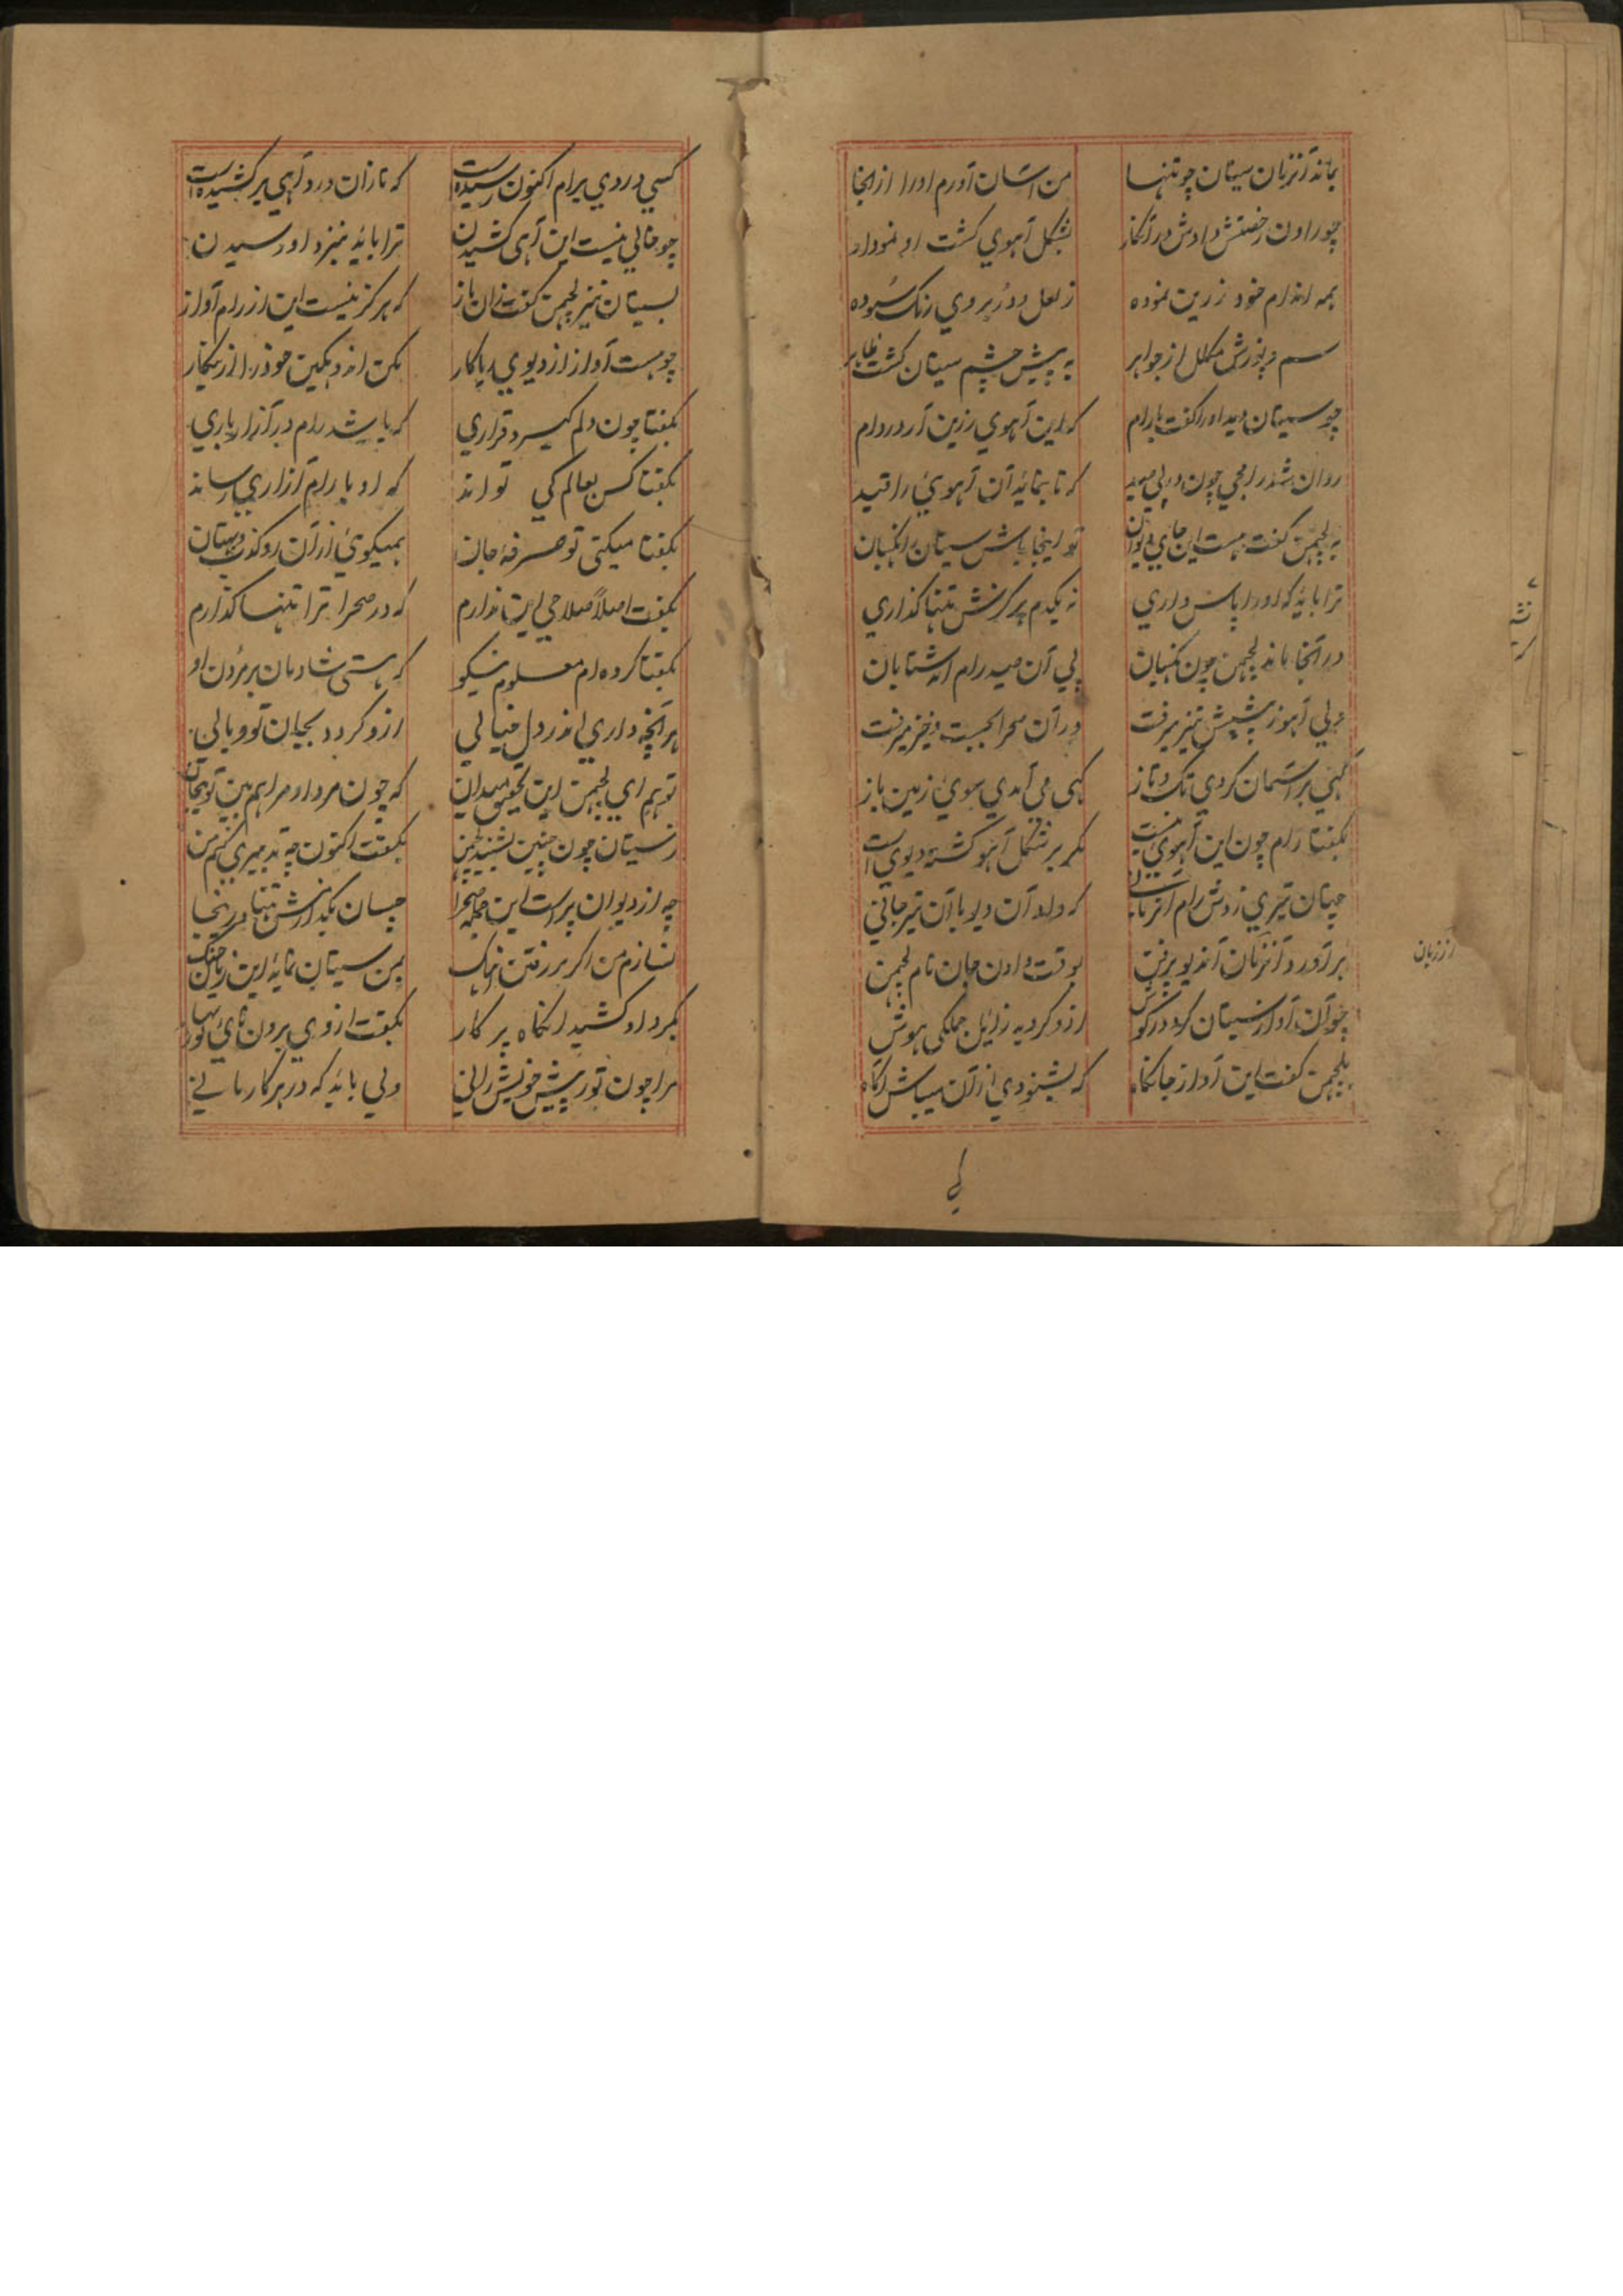 بماند آنزمان سیتان چو تنها من آسان آورم اورا ازانجا
چو راون رخصتش دادش در آنکار بشکل آهوی کشت او نمودار
همه اندام خود زرین نموده ز لعل و در بروی رنک سوده
سم و پوزش مکلل از جواهر به پیش چشم سیتان کشت ظاهر
چو سیتان دید اورا کفت با رام که این آهوی زرین آر در دام
روان شد رامجی چون در پی صید که تا بنماید آن آهوی را قید
به لچمن کفت هست این جای دیوان تو اینجا باش سیتان را نکهبان
ترا باید که اورا پاس داری نه یکدم هرکزش تنها کذاری
در آنجا ماند لچمن چون نکهبان پی آن صید رام آمد شتابان
ولی آهو ز پیشش تیز میرفت در آن صحرا بجست و خیز میرفت
کهی بر آسمان کردی تک و تاز کهی می آمدی سوی زمین باز
بکفتا رام چون این آهوی نیست مکر بر شکل آهو کشته دیوی است
چنان تیری زدش رام آنزمانی که داد آن دیو با آن تیر جانی
برآورد آنزمان آندیو پرفن بوقت دادن جان نام لچمن
چو آن آواز سیتان کرد در کوش ازو کردید زایل جملکی هوش
بلچمن کفت این آواز جانکاه که بشنودی ازان میباش آکاه
ازرمان
کسی دردی برام اکنون رسیده است که تا زان درد آهی برکشیده است
چو خالی نیست این آهی کشیدن ترا باید بنزد او رسیدن
بسیتان نیز لچمن کفت زان باز که هرکز نیست این از رام آواز
چو هست آواز از دیوی ریاکار مکن اندوهکین خود را ازینکار
بکفتا چون دلم کیرد قراری که باشد رام در آزار باری
بکفتا کس بعالم کی تواند که او با رام آزاری رساند
بکفتا میکنی تو صرفهٔ جان همیکوی ازان رو کذب و بهتان
بکفت اصلا صلاحی این ندارم که در صحرا ترا تنها کذارم
بکفتا کرده ام معلوم نیکو که هستی شادمان بر مردن او
هر آنچه داری اندر دل خیالی ازو کردد بجان تو وبالی
تو هم ای لچمن این تحقیق میدان که چون مرد او مرا هم بین تو بیجان
ز سیتان چون چنین بشنید لچمن بکفت اکنون چه تدبیری کنم من
چه از دیوان پر است این جمله صحرا چسان بکذارمش تنها در اینجا
نسازم من اکر بر رفتن آهنک بمن سیتان نماید این زمان جنک
بکرد او کشید آنکاه پرکار بکفت از وی برون نایی تو زنهار
مرا چون تو ز پیش خویش رانی ولی باید که در پرکار مانی